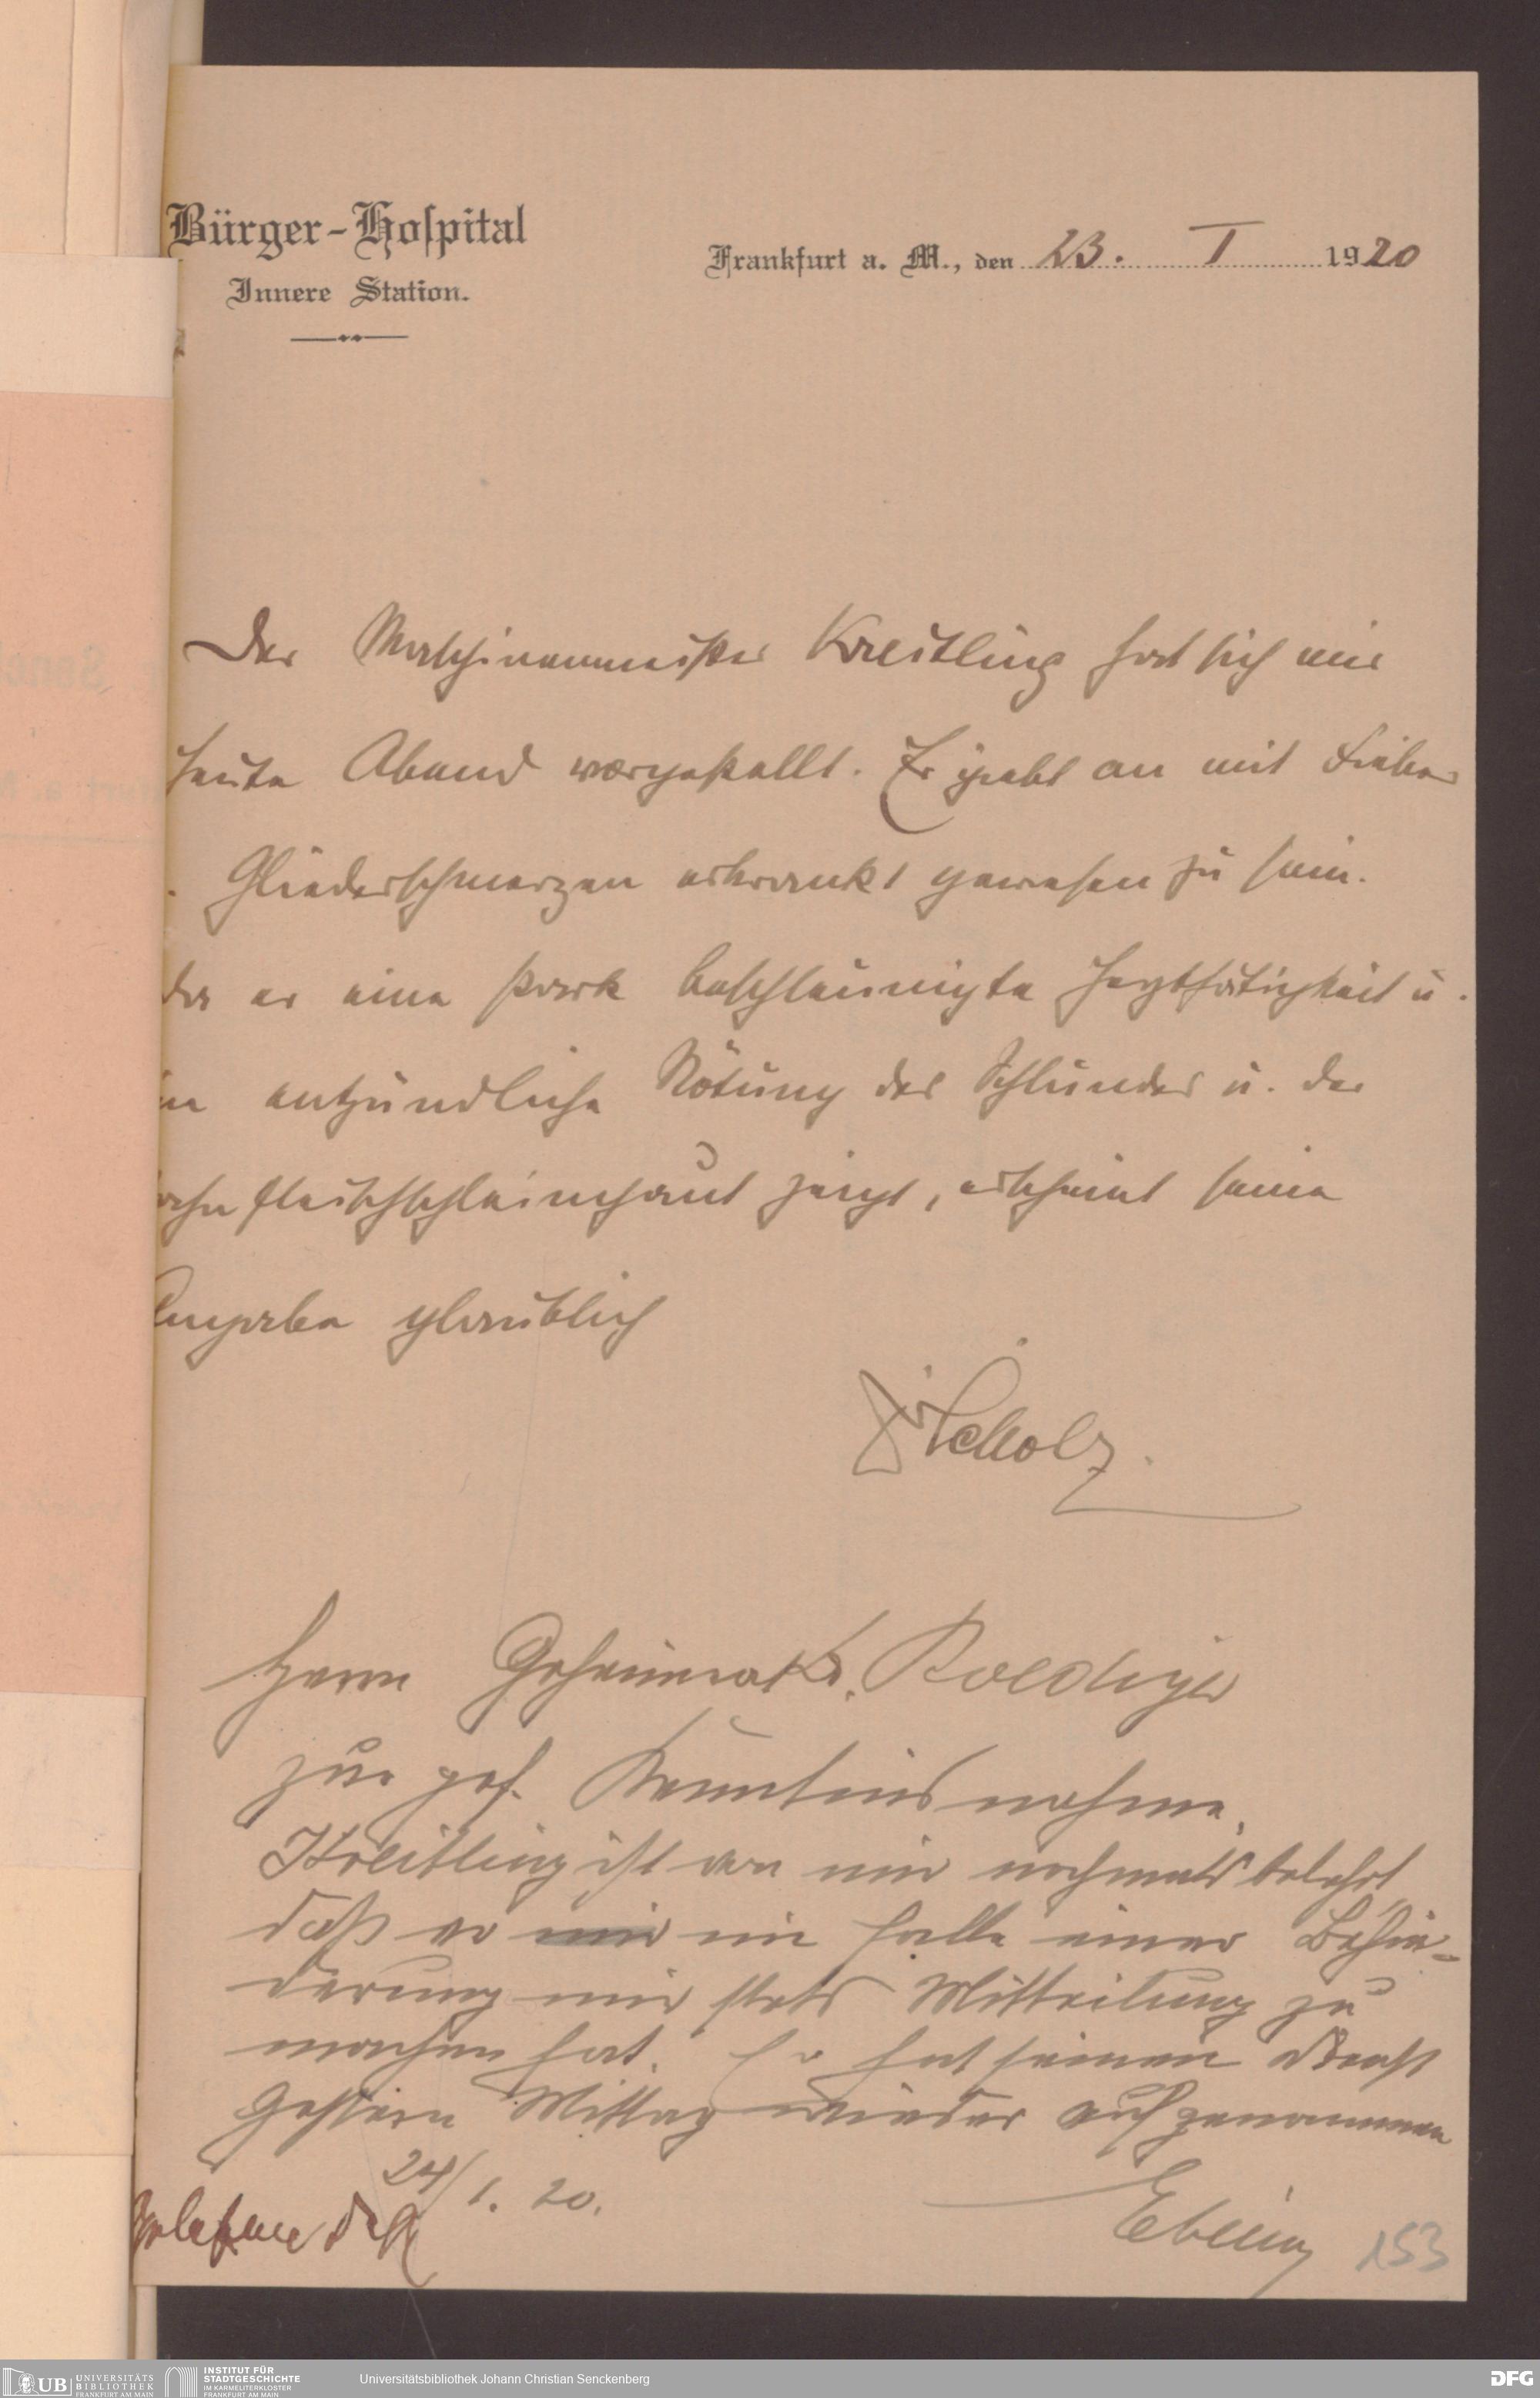 Bürger-Hospital
Innere Station.
Frankfurt a. M., den 23. I 1920
Der Maschinenmeister Kreitling hat sich mir
heute Abend vorgestellt. Er giebt an mit Fieber
. Gliederschmerzen erkrankt gewesen zu sein.
Da er eine stark beschleunigte Herztätigkeit u.
entzündliche Rötung des Schlundes u. der
fleischschleimhaut zeigt, erscheint seine
Angabe glaublich
Dr Scholz.
Herrn Geheimrat Dr. Roediger
zur gef. Kenntnisnahme.
Kreitling ist von mir nochmals belehrt
daß er mir im Falle einer Behin-
derung mir stets Mitteilung zu
machen hat. Er hat seinen Dienst
gestern Mittag wieder aufgenommen
24/1. 20.
Ebeling
Gelesen Dr R
153
UB UNIVERSITÄTS
BIBLIOTHEK
FRANKFURT AM MAIN
INSTITUT FÜR
STADTGESCHICHTE
IM KARMELITERKLOSTER
FRANKFURT AM MAIN
Universitätsbibliothek Johann Christian Senckenberg
DFG